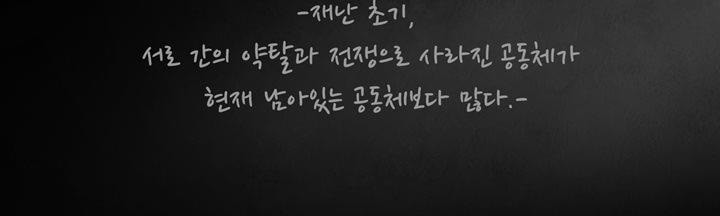 -재난 초기,
서로 간의 약탈과 전쟁으로 사라진 공동체가
현재 남아있는 공동체보다 많다.-